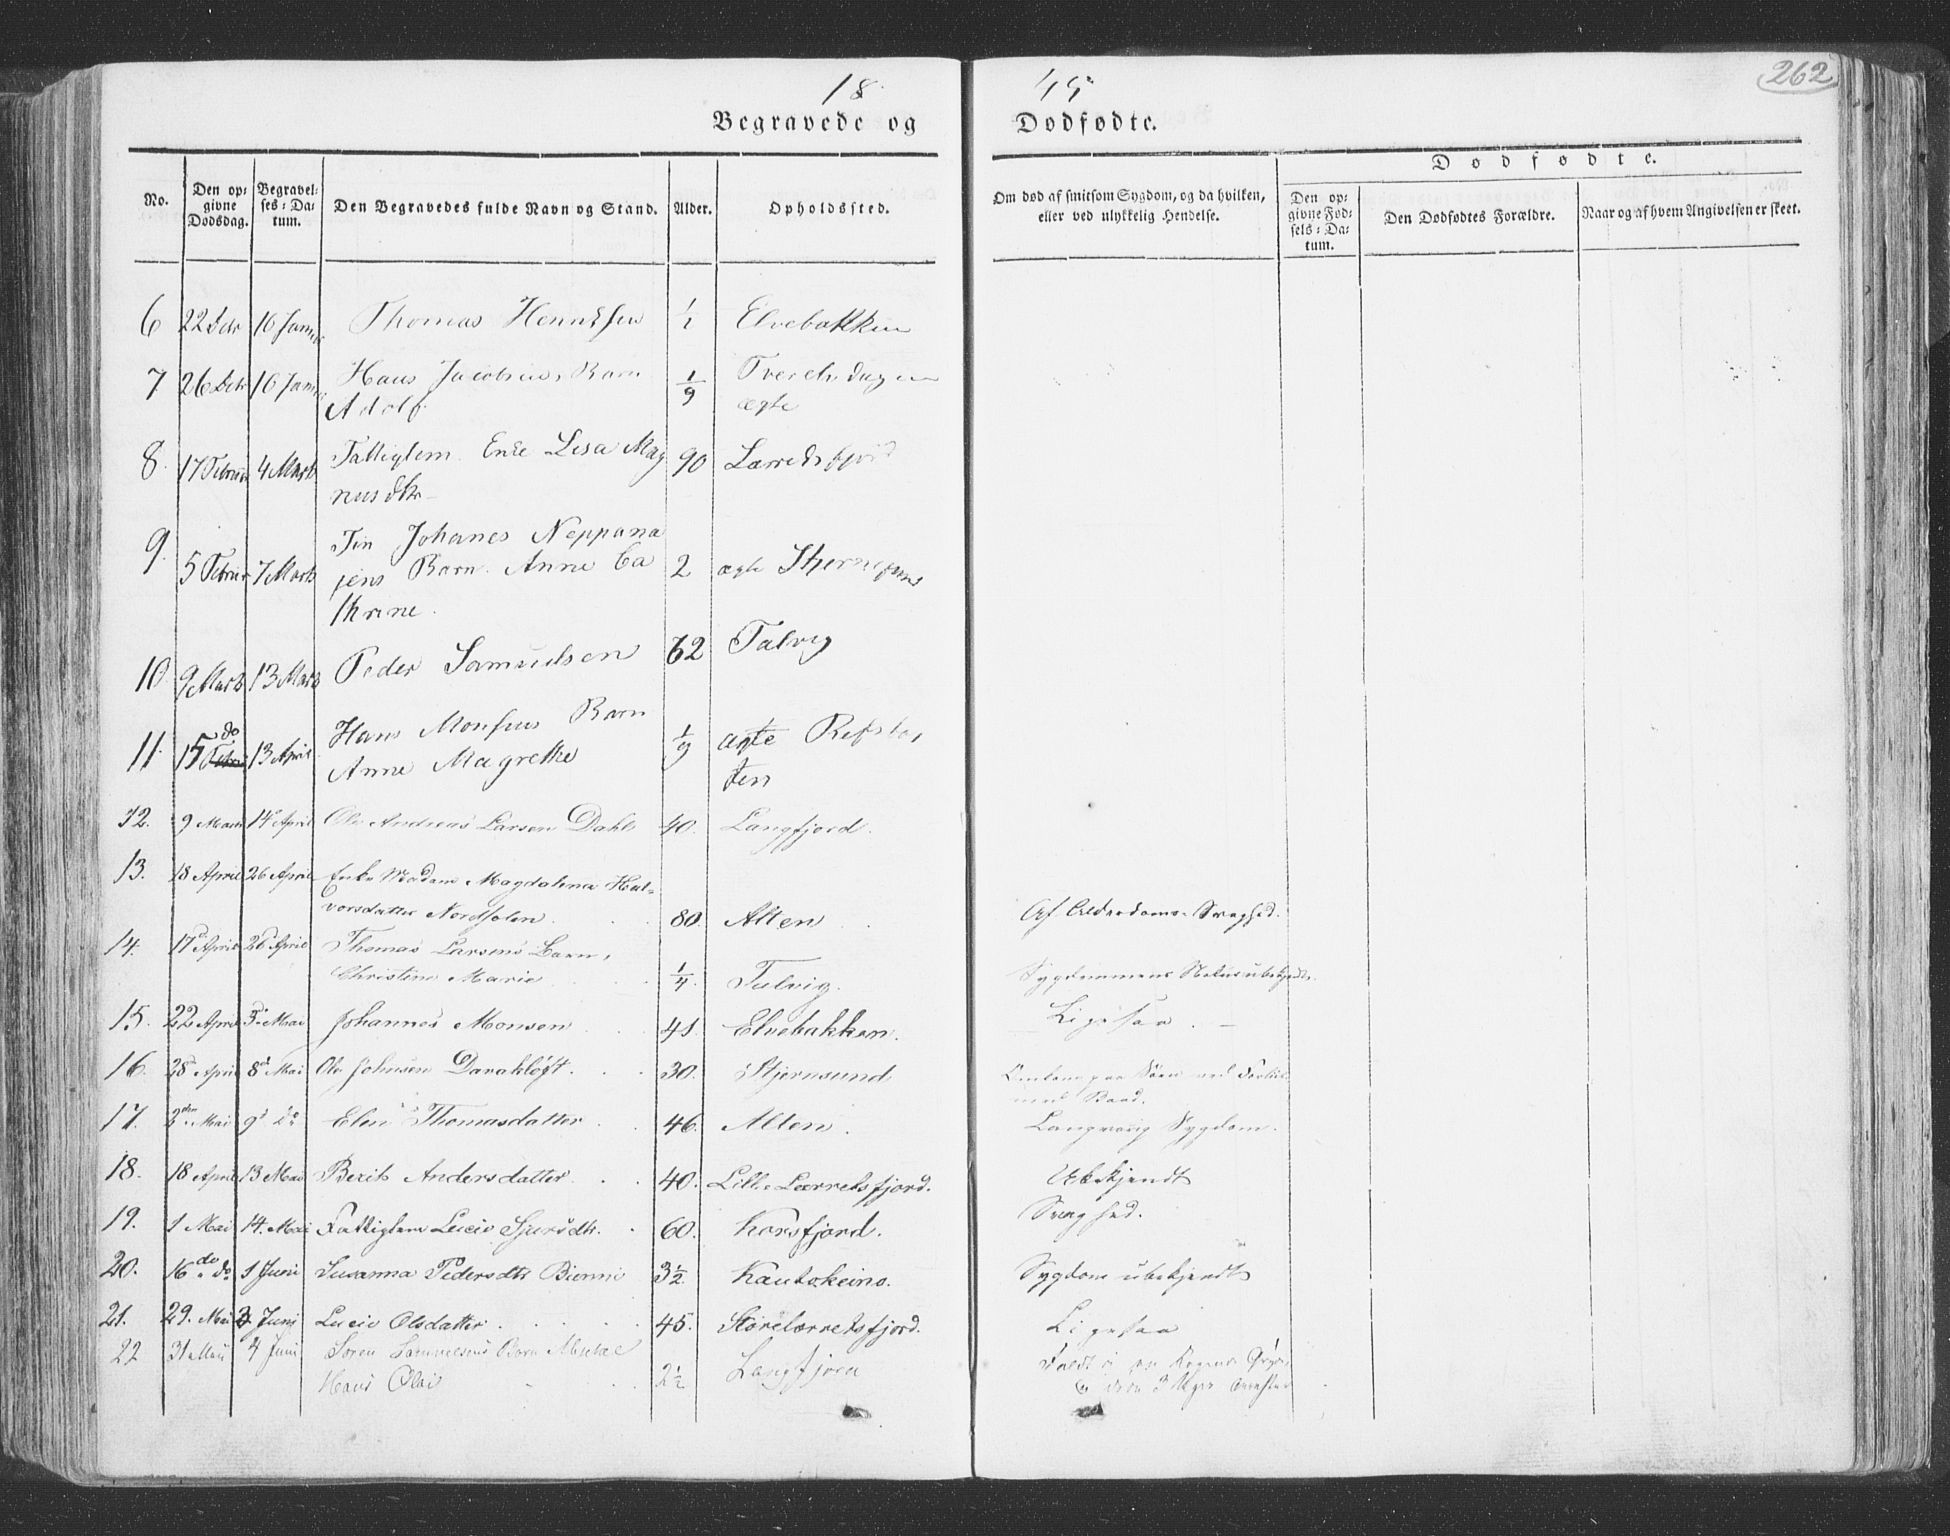 18 45
262
Begravede og Dødfødte.
Dødfødte.
No. Den opgivne Dødsdag. Begravelses-Datum. Den Begravedes fulde Navn og Stand. Alder. Opholdssted. Om død af smitsom Sygdom, og da hvilken, eller ved ulykkelig Hendelse. Den opgivne Fødsels-Datum. Den Dødfødtes Forældre. Naar og af hvem Angivelsen er skeet.
6 22 Dcbr 16 Januar Thomas Henriksen 1/2 Elvebakken
7 26 Dcbr 16 Januar Hans Jacobsens Barn 1/9 Tverelvdagen
Adolf. ægte
8. 17 Februar 4 Marts Fattiglem Enke Lisa Mag 90 Lerredsfjord
nusdtr
9. 5 Februar 7 Marts Fin Johanes Neppana
jens Barn. Anne Ca 2 ægte Stjernesund
thrine.
10 9 Marts 13 Marts Peder Samuelsen 62 Talvig
11. 15 do 13 April Hans Monsens Barn 1/9 ægte Refsbo,
Anne Magrethe ten
12. 9 Marts 14 April Ole Andreas Larsen Dahl 40. Langfjord.
13. 18 April 26 April Enke Madam Magdalena Hal-
vorsdatter Nordfolen. 80. Alten. Af Alderdoms-Svaghed.
14. 17 April 26 April Thomas Larsens Barn,
Christine Marie 1/4. Talvig. Sygdommens Natur ubekjendt.
15. 22 April 3d Mai Johannes Monsen 41. Elvebakken. Ligesaa.
16. 28 April 8d Mai Ole Johnsen Darakløft. 30. Stjernsund Omkom paa Søen ved Forliis
med Baad.
17. 2den Mai 9d do Elen Thomasdatter 46. Alten. Langvarig Sygdom.
18. 18 April 13 Mai Berit Andersdatter. 40. Lille Lerretsfjord. Ubekjendt
19. 1 Mai 14. Mai Fattiglem Lucie Sjursdtr. 60. Korsfjord. Svaghed.
20. 16 do do 1 Juni Susanna Pedersdtr Bienni 3 1/2 Kautokeino. Sygdom ubekjendt
21. 29. Mai 3. Juni Lucie Olsdatter. 45. Storelerretsfjord. Ligesaa
22 31 Mai 4 Juni Søren Samuelsens Barn Mickal
Hans Olai 2 1/2 Langfjord Faldt i en Kogende Gryde,